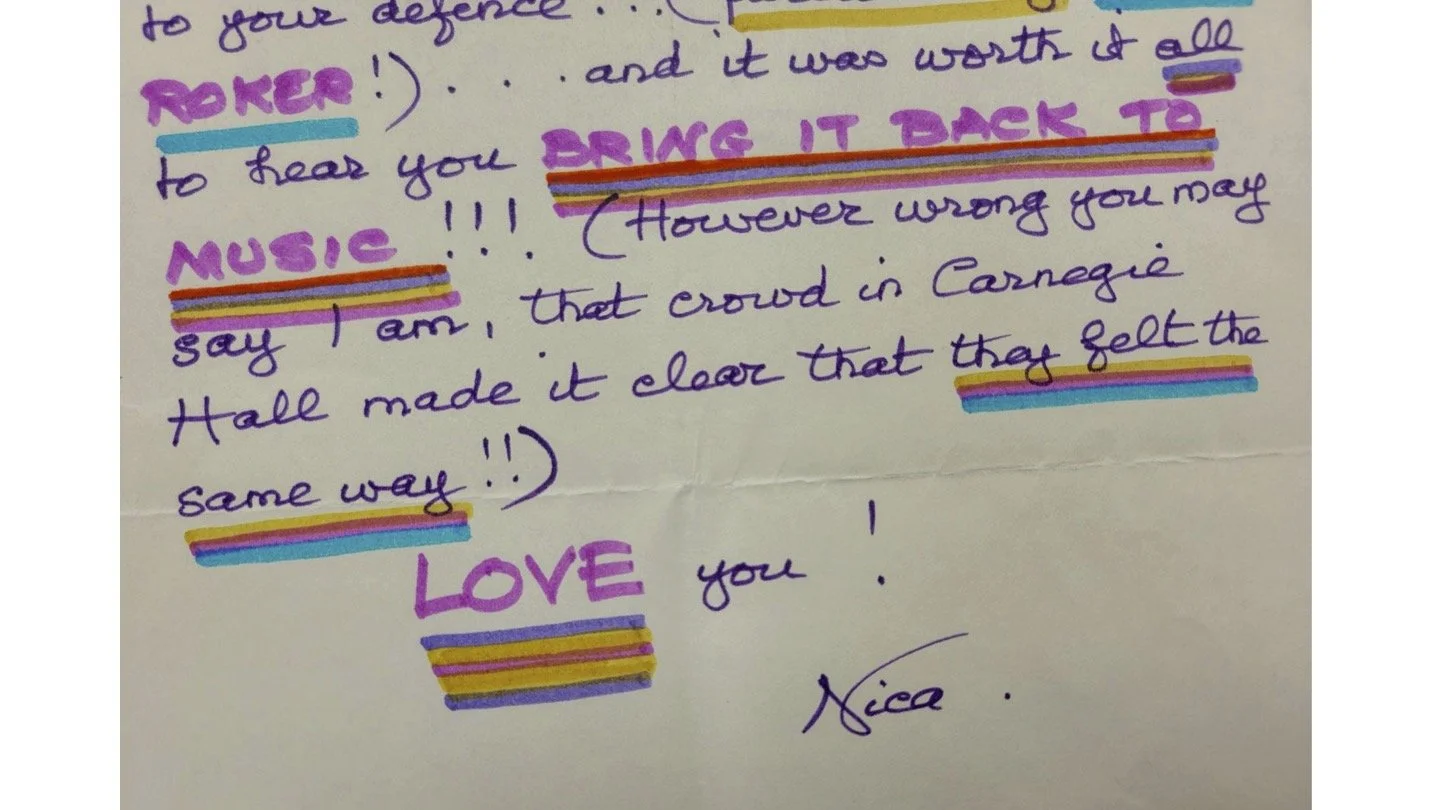 to your defence . . . (
ROKER!) . . . and it was worth it all
to hear you BRING IT BACK TO
MUSIC !!! (However wrong you may
say I am, that crowd in Carnegie
Hall made it clear that they felt the
same way!!)
LOVE you !
Nica .